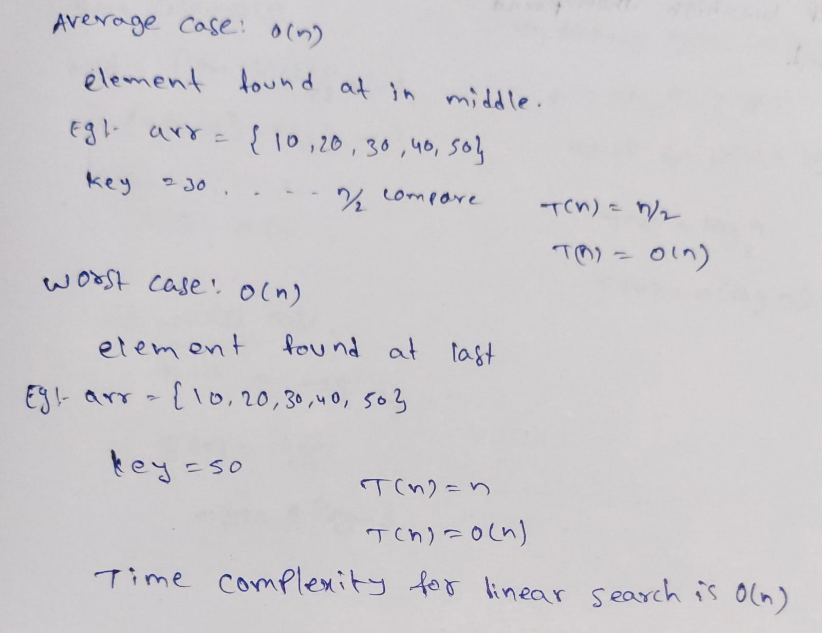 Average case: O(n)
element found at in middle.
Eg:- arr = { 10, 20, 30, 40, 50}
key = 30 . . - - - n/2 compare
T(n) = n/2
T(n) = O(n)
worst case: O(n)
element found at last
Eg:- arr = {10, 20, 30, 40, 50}
key = 50
T(n) = n
T(n) = O(n)
Time complexity for linear search is O(n)